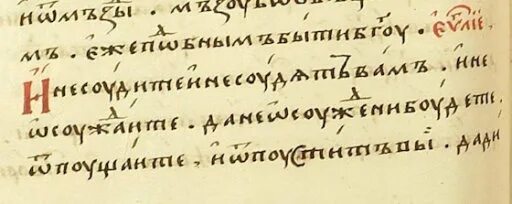 мъ . є҆жепѡⷣбнымъбытибг҃оу . є҆ѵⷢ҇лїе .
И҆несоудитеи҆несоудѧтъвамъ . и҆не
ѡ҆соужⷣаите . данеѡ҆соужⷣенибоудете .
ѿпоущаите . и҆ѿпоуститъвы . дади